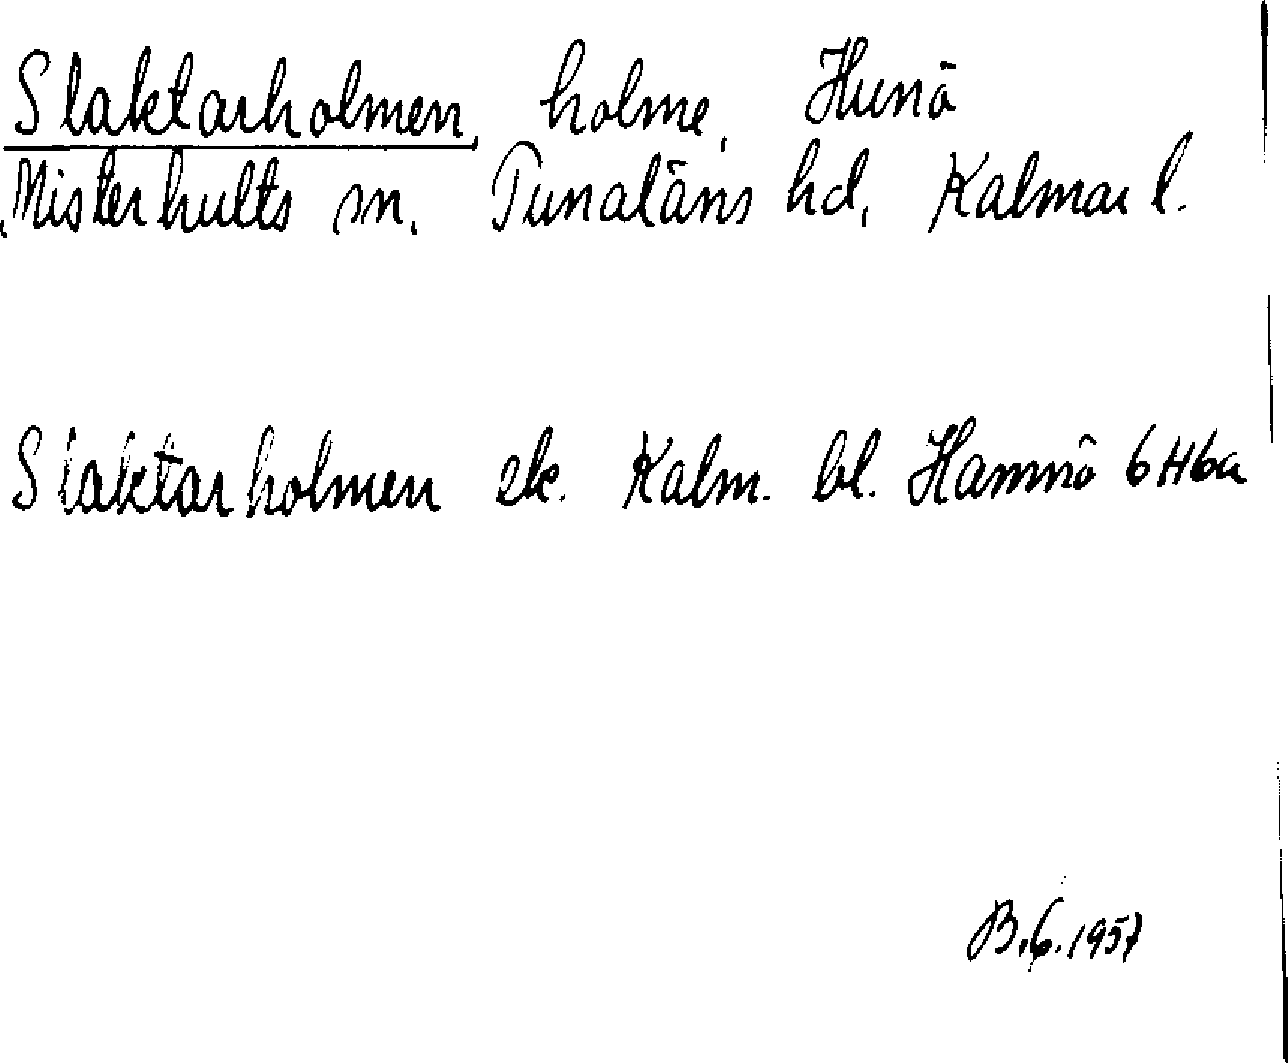 Slaktarholmen, holme, Hunö
Misterhults sn. Tunaläns hd, Kalmar l.
Slaktarholmen ek. Kalm. bl. Hamnö 6H6a
B.G.1957